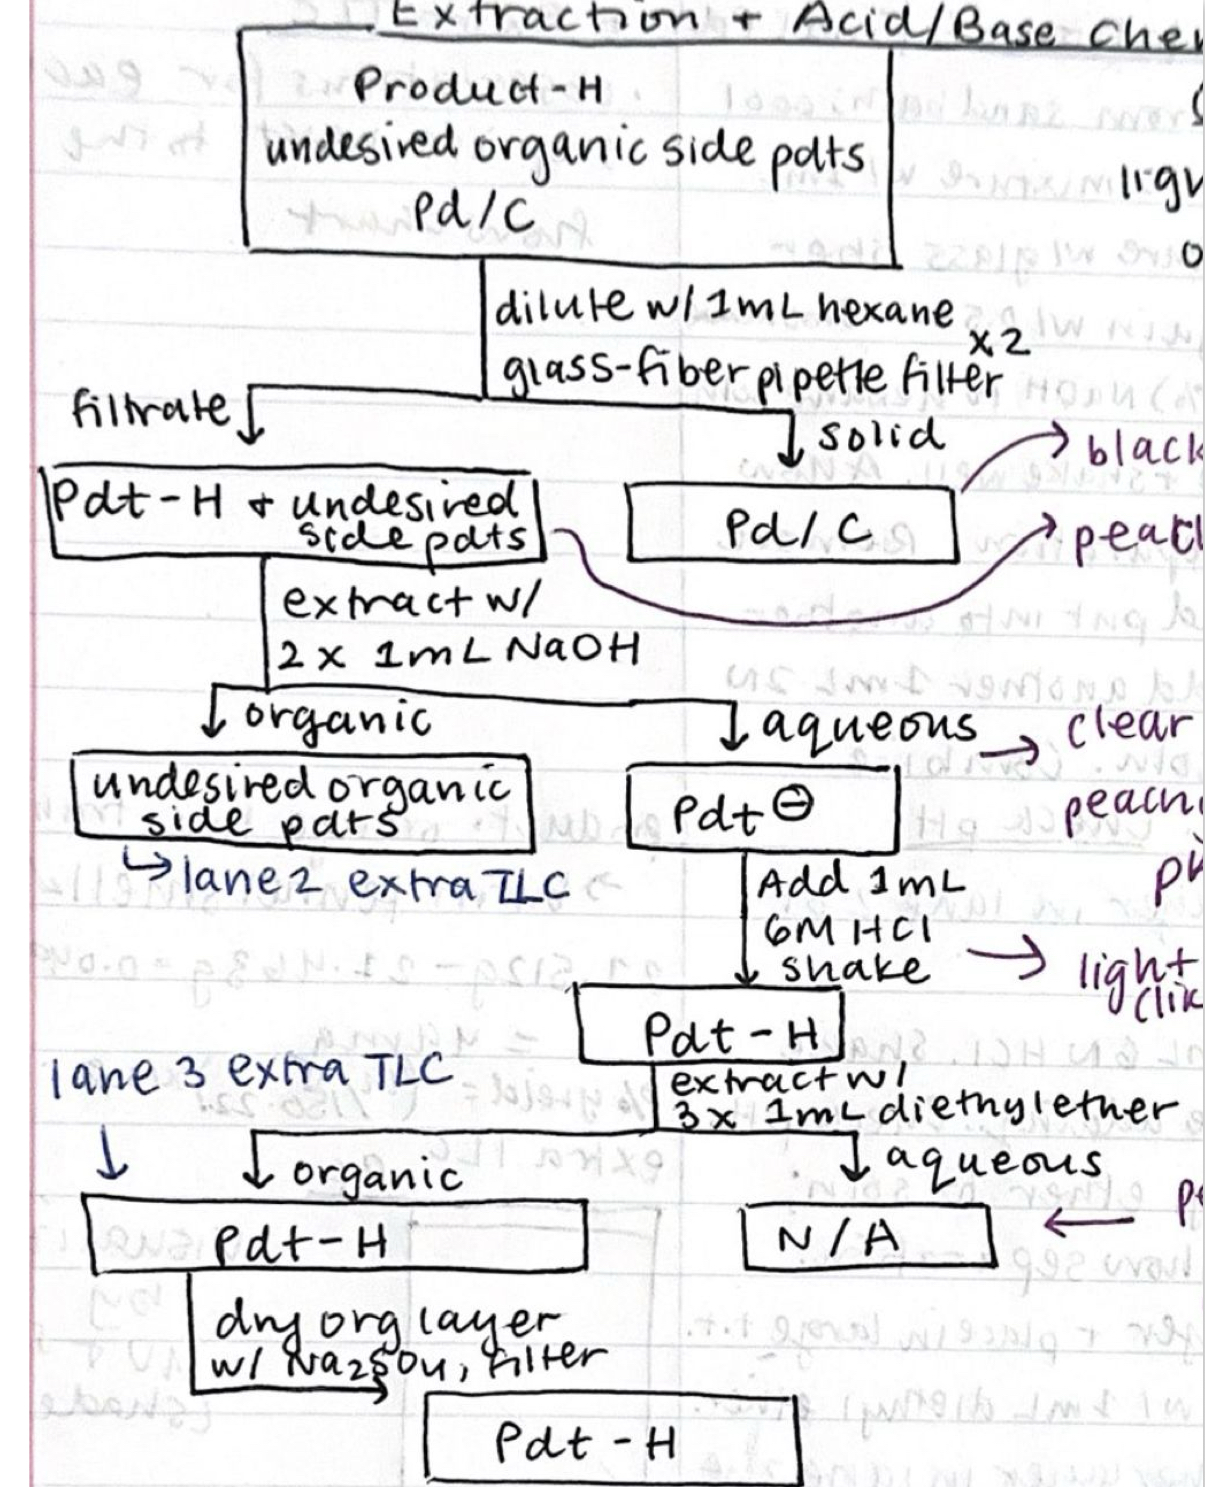 Extraction + Acid/Base Che
Product-H
undesired organic side pdts
Pd/C
dilute w/ 1mL hexane
x2
glass-fiber pipette filter
filtrate
solid
black
Pdt-H + undesired
side pdts
Pd/C
extract w/
2 x 1mL NaOH
organic
aqueous
clear
undesired organic
side pdts
Pdt ⊖
lane 2 extra TLC
Add 1mL
6M HCl
shake
light
Pdt-H
lane 3 extra TLC
extract w/
3x 1mL diethylether
organic
aqueous
Pdt-H
N/A
dry org layer
w/ Na2SO4, filter
Pdt-H